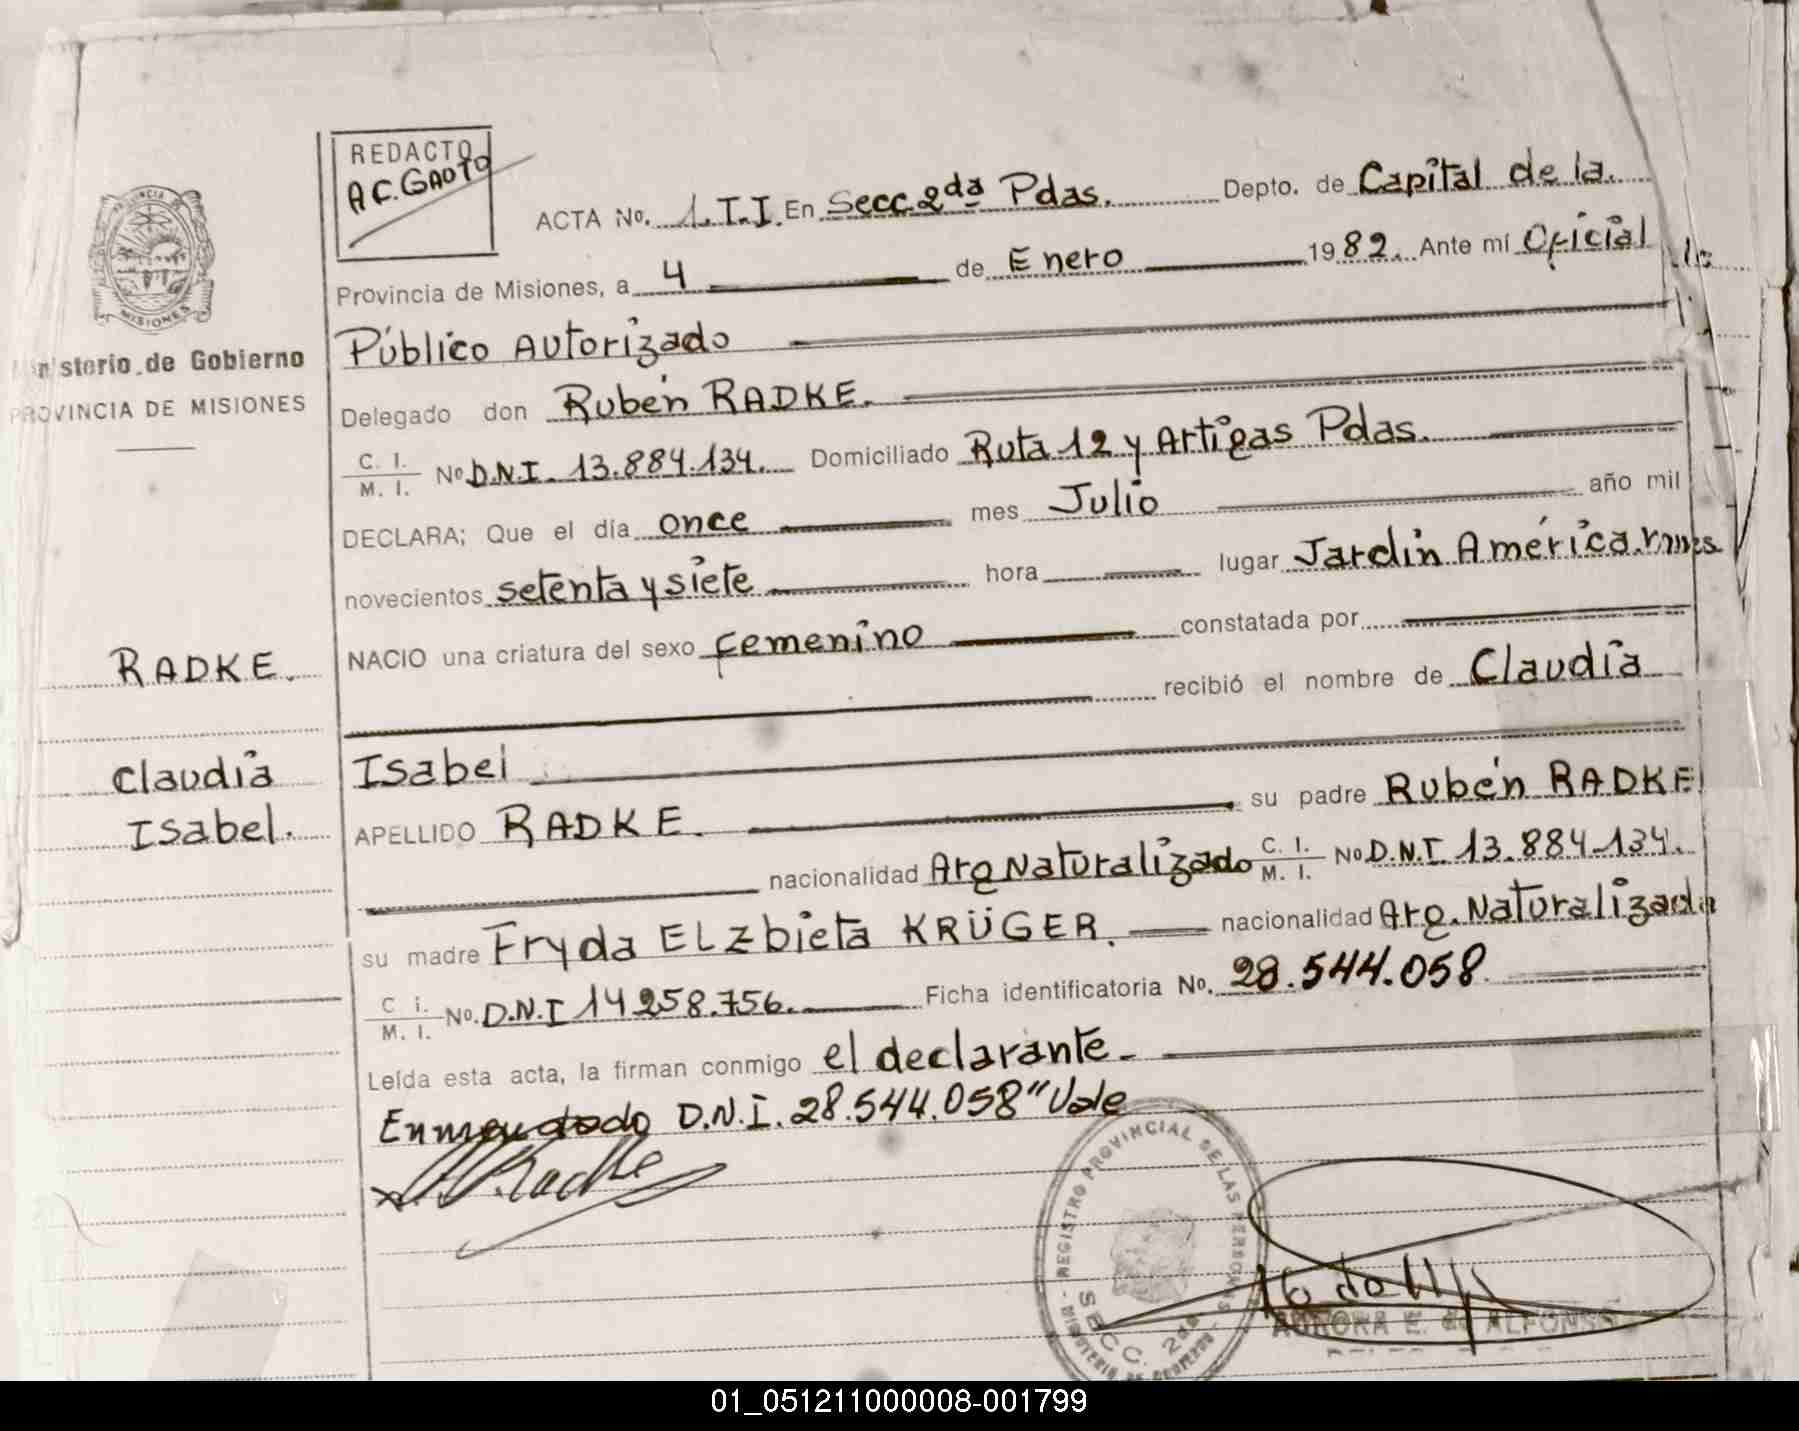 REDACTO
A C. GAOTO
ACTA No. 1.T.I. En Secc. 2da Pdas. Depto. de Capital de la
Provincia de Misiones, a 4 de Enero 1982. Ante mí Oficial
Público Autorizado
Delegado don Rubén RADKE.
C. I. / M. I. No D.N.I. 13.884.134. Domiciliado Ruta 12 y Artigas Pdas.
DECLARA; Que el día once mes Julio año mil
novecientos setenta y siete hora lugar Jardín América
NACIO una criatura del sexo Femenino constatada por
recibió el nombre de Claudia
Isabel
APELLIDO RADKE. su padre Rubén RADKE
nacionalidad Arg Naturalizado C. I. / M. I. No D.N.I 13.884.134.
su madre Fryda ELzbieta KRÜGER. nacionalidad Arg. Naturalizada
C i. / M. I. No. D.N.I 14258.756. Ficha identificatoria No. 28.544.058
Leída esta acta, la firman conmigo el declarante.
Enmendado D.N.I. 28.544.058" Vale
Radke
PROVINCIA DE
MISIONES
Ministerio de Gobierno
PROVINCIA DE MISIONES
RADKE.
Claudia
Isabel.
REGISTRO PROVINCIAL DE LAS PERSONAS
SECC. 2da
AURORA E. de ALFONSO
01_051211000008-001799